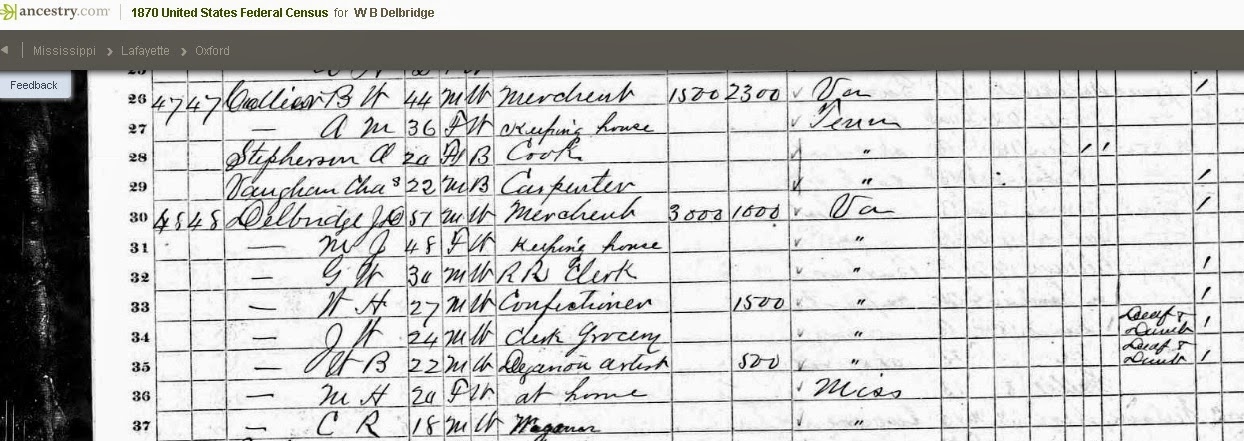 ancestry.com 1870 United States Federal Census for W B Delbridge
Mississippi Lafayette Oxford
Feedback
26 47 47 B W 44 M W Merchent 1500 2300 Va /
27 — A M 36 F W Keeping house Tenn
28 Stepherson A 20 F B Cook " / /
29 Vaughan Chas 22 M B Carpenter " /
30 48 48 Delbridge J D 51 M W Merchent 3000 1000 Va /
31 — M J 48 F W Keeping house "
32 — G W 30 M W R R Clerk " /
33 — W H 27 M W Confectioner 1500 " /
34 — J W 24 M W Clerk Grocery " Deaf & Dumb /
35 — W B 22 M W artist 500 " Deaf & Dumb /
36 — M H 20 F W at home Miss
37 — C R 18 M W "